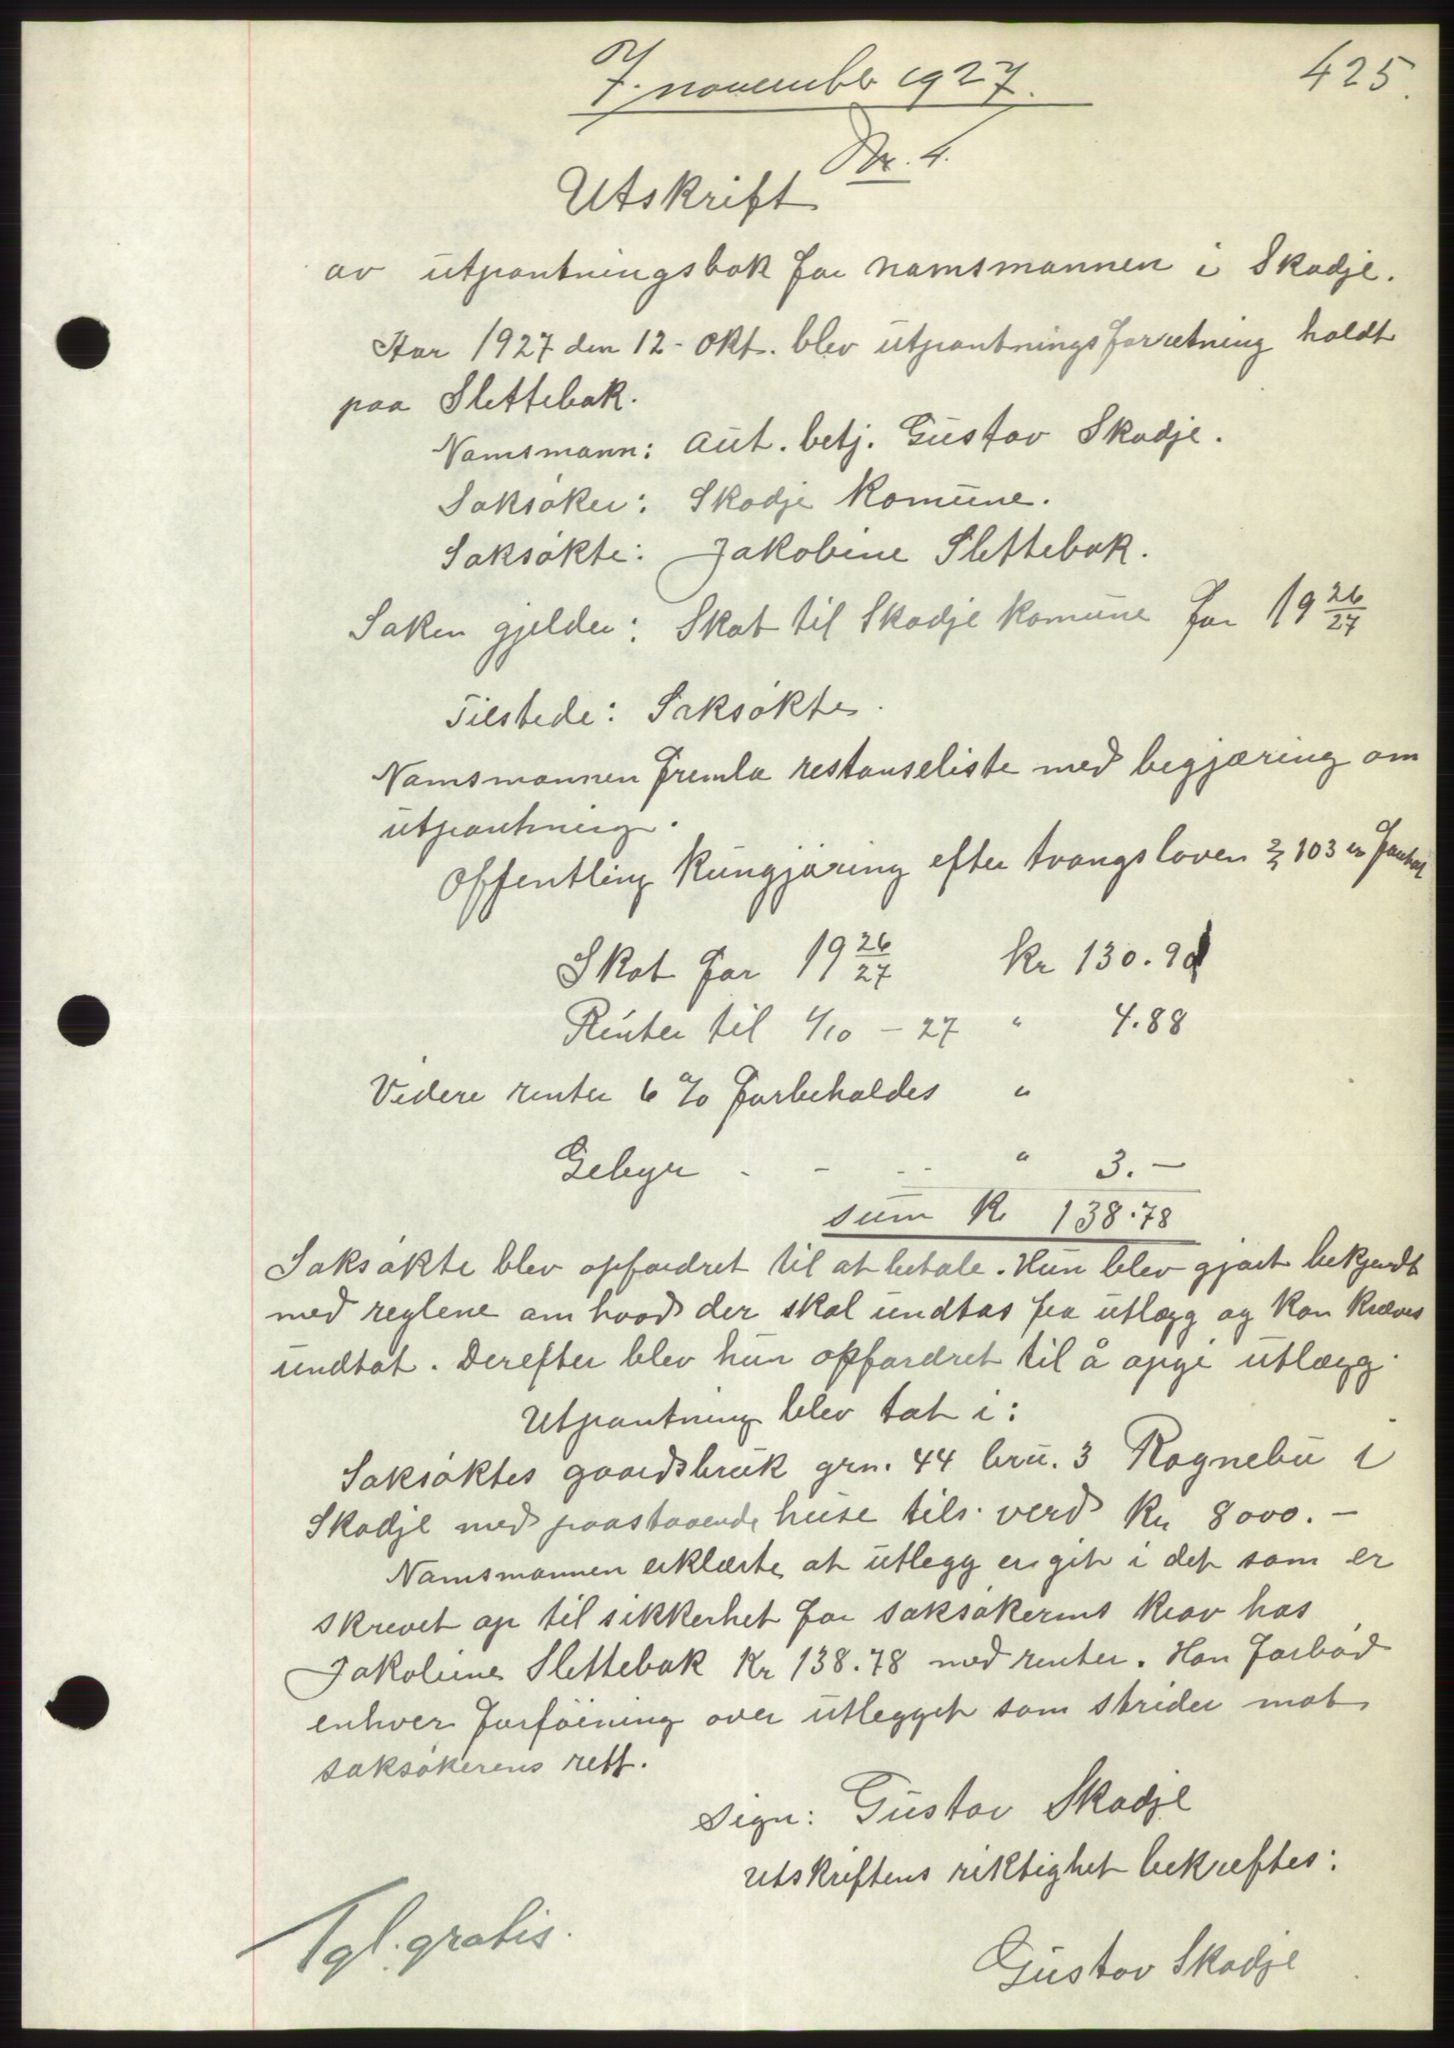 7. november 1927.
425.
Nr. 4.
Utskrift
av utpantningsbok for namsmannen i Skodje.
Aar 1927 den 12 - okt. blev utpantningsforretning holdt
paa Slettebak.
Namsmann: aut. betj. Gustav Skodje.
Saksøker: Skodje Komune.
Saksøkte: Jakobine Slettebak.
Saken gjelder: Skat til Skodje komune for 19 26/27
Tilstede: Saksøkte.
Namsmannen fremla restanseliste med begjæring om
utpantning.
Offentling kungjøring efter tvangsloven § 103 er
Skat for 19 26/27 kr 130.90
Renter til 1/10 - 27 " 4.88
Videre renter 6 % forbeholdes "
Gebyr - - - " 3.-
sum Kr 138.78
Saksøkte blev opfordret til at betale. Hun blev gjort bekjendt
med reglene om hvad der skal undtas fra utlægg og kan kræves
undtat. Derefter blev hun opfordret til å opgi utlægg.
Utpantning blev tat i:
Saksøktes gaardsbruk grn. 44 bru. 3 Rognebu i
Skodje med paastaaende huse tils. verd Kr 8000.-
Namsmannen erklærte at utlegg er git i det som er
skrevet op til sikkerhet for saksøkerens krav hos
Jakobine Slettebak Kr 138.78 med renter. Han forbød
enhver forføining over utlegget som strider mot
saksøkerens rett.
Sign: Gustav Skodje
Utskriftens riktighet bekreftes:
Tgl. gratis.
Gustav Skodje